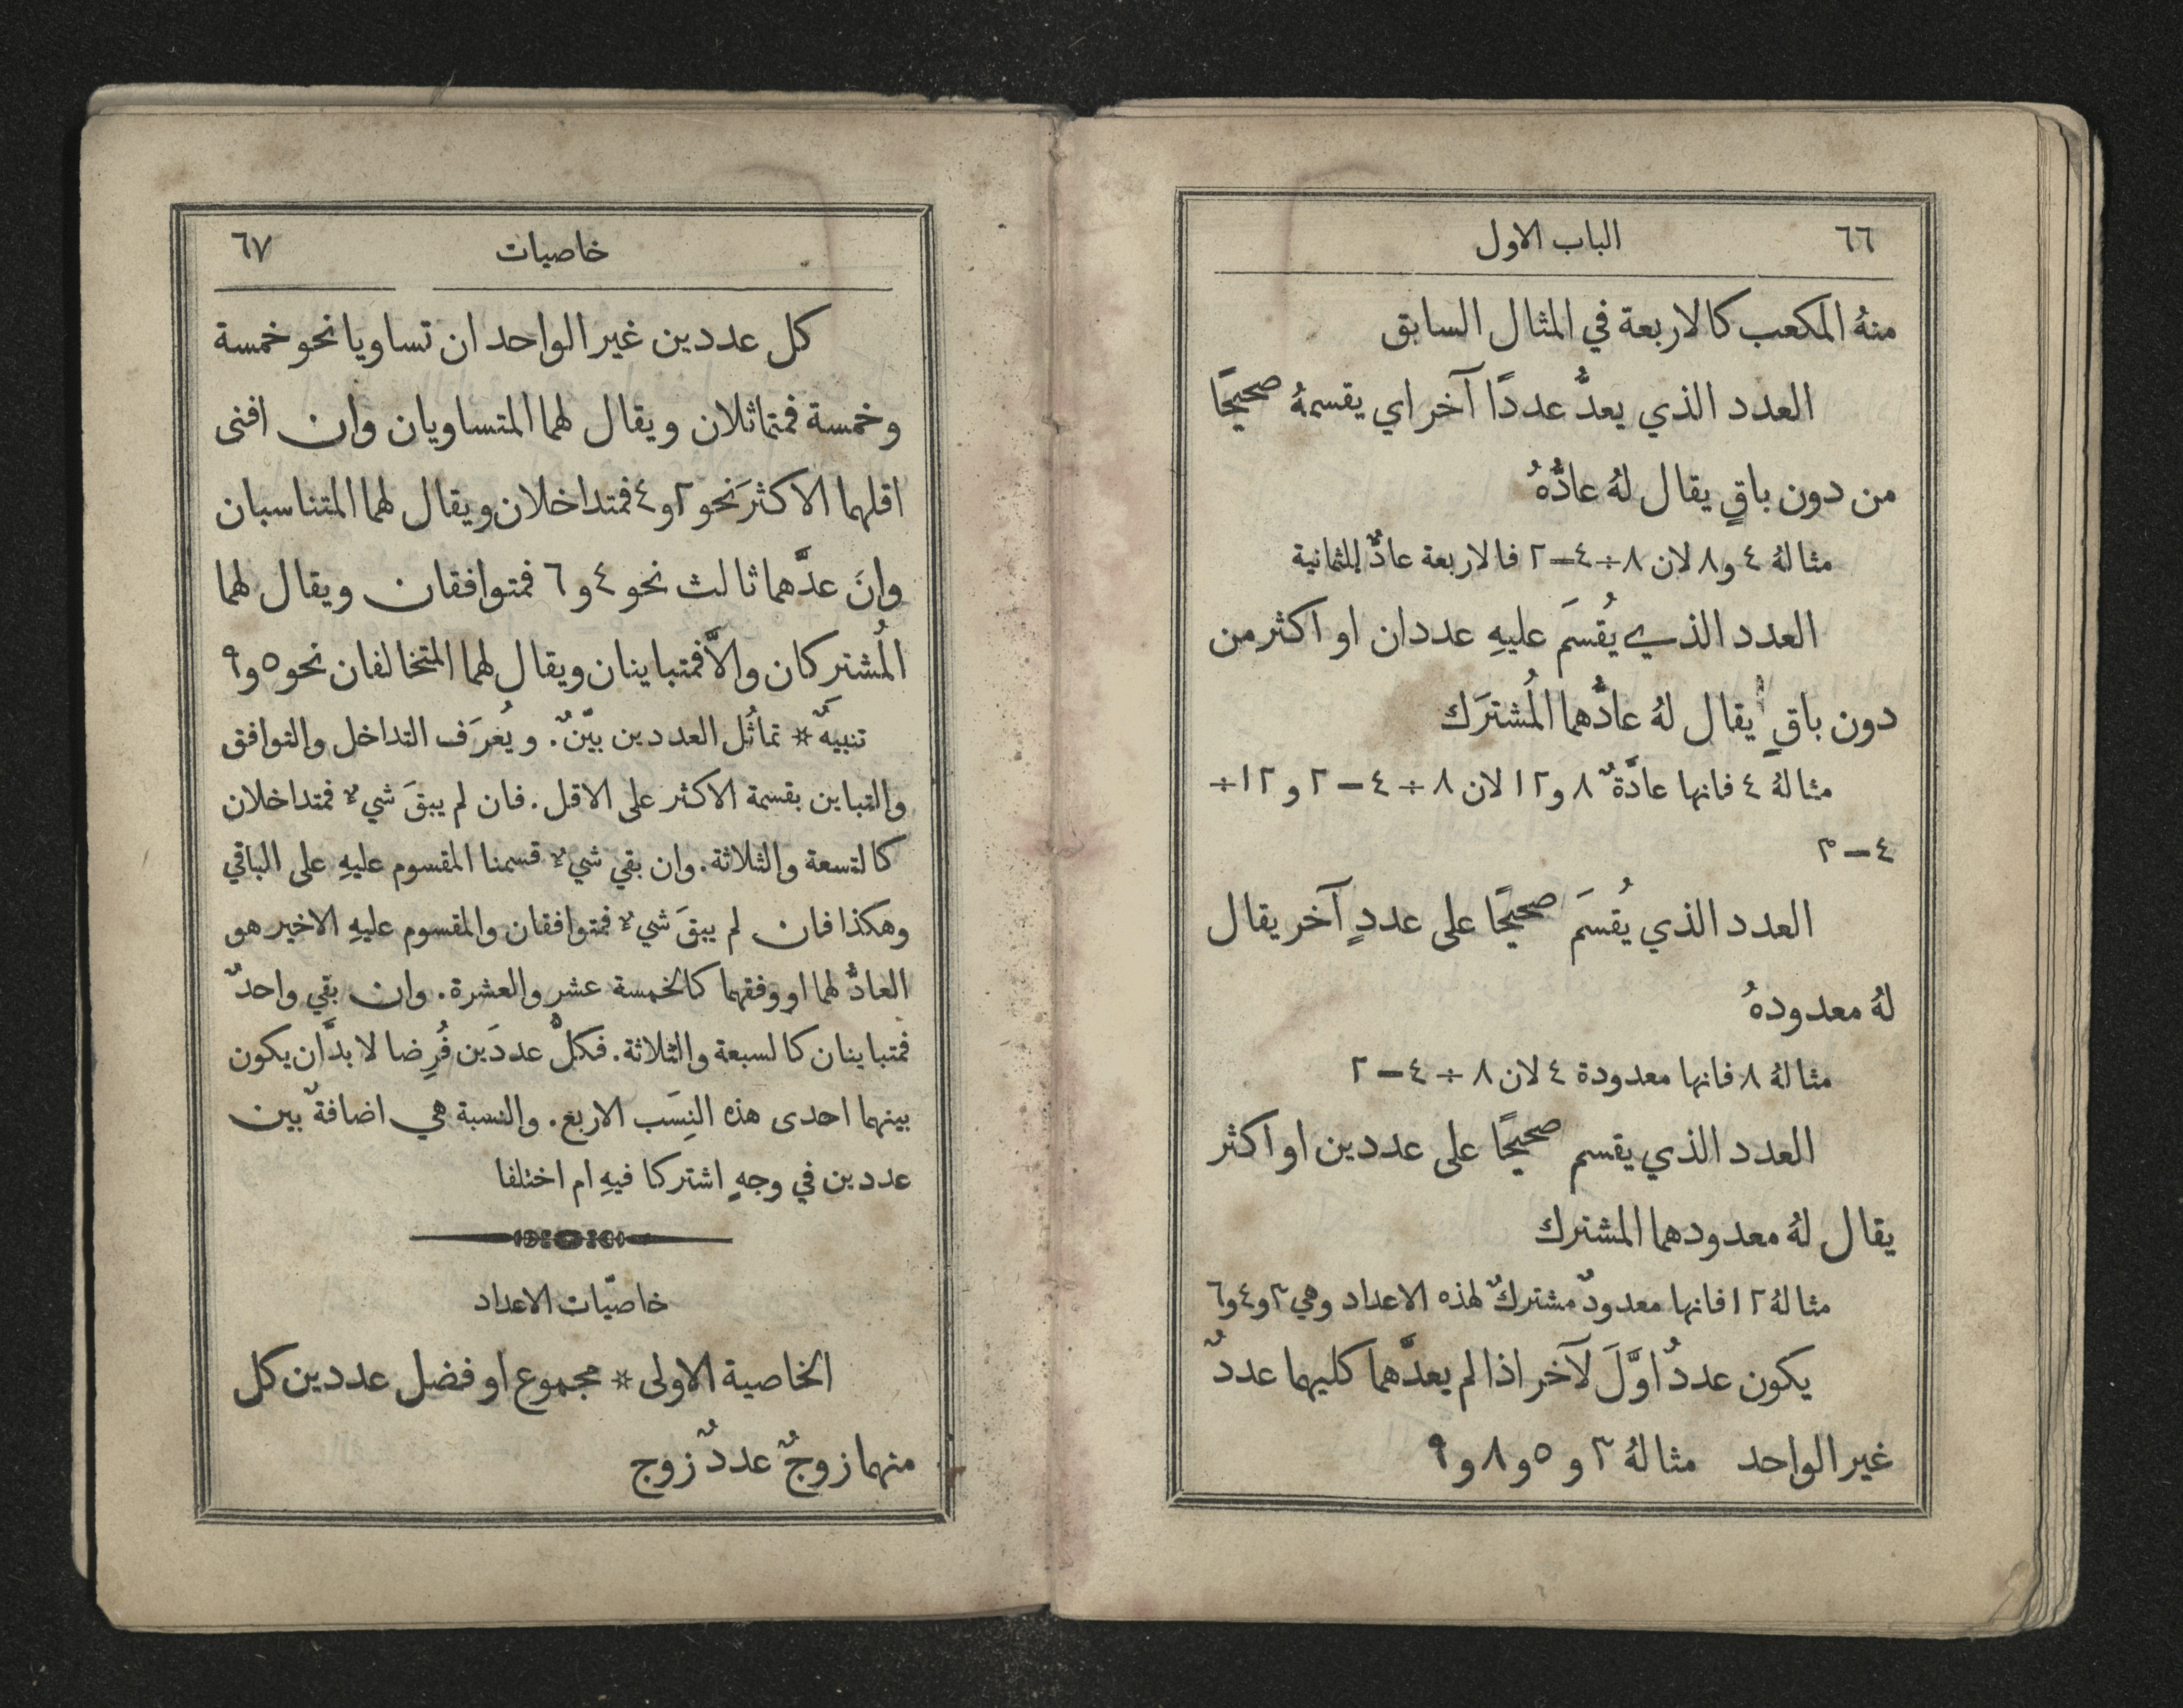 ٦٦ الباب الاول
منهُ المكعب كالاربعة في المثال السابق
العدد الذي يعدُّ عددًا آخر اي يقسمهُ صحيحًا
من دون باقٍ يقال لهُ عادُّهُ
مثالهُ ٤ و٨ لان ٨÷٤–٢ فالاربعة عادٌّ للثمانية
العدد الذي يُقسَم عليهِ عددان او اكثر من
دون باقٍ يقال لهُ عادُّهما المُشترَك
مثالهُ ٤ فانها عادَّةٌ ٨ و١٢ لان ٨ ÷ ٤ – ٢ و ١٢ ÷
٤ – ٣
العدد الذي يُقسَم صحيحًا على عددٍ آخر يقال
لهُ معدودهُ
مثالهُ ٨ فانها معدودة ٤ لان ٨ ÷ ٤ – ٢
العدد الذي يقسم صحيحًا على عددين او اكثر
يقال لهُ معدودهما المشترك
مثالهُ ١٢ فانها معدودٌ مشتركٌ لهذه الاعداد وهي ٣ و٤ و٦
يكون عددٌ اوَّلَ لآخر اذا لم يعدَّهما كليهما عددٌ
غير الواحد مثالهُ ٣ و ٥ و ٨ و ٩
خاصيات ٦٧
كل عددين غير الواحد ان تساويا نحو خمسة
وخمسة فمتماثلان ويقال لهما المتساويان وان افنى
اقلهما الاكثرَ نحو ٢ و ٤ فمتداخلان ويقال لهما المتناسبان
وانَ عدَّهما ثالث نحو ٤ و ٦ فمتوافقان ويقال لهما
المُشتركان والَّا فمتباينان ويقال لهما المتخالفان نحو ٥ و ٩
تنبيهٌ * تماثُل العددين بيّنٌ. ويُعرَف التداخل والتوافق
والتباين بقسمة الاكثر على الاقل. فان لم يبقَ شيءٌ فمتداخلان
كالتسعة والثلاثة. وان بقي شيءٌ قسمنا المقسوم عليهِ على الباقي
وهكذا فان لم يبقَ شيءٌ فمتوافقان والمقسوم عليهِ الاخير هو
العادُّ لهما او وفقهما كالخمسة عشر والعشرة. وان بقي واحدٌ
فمتباينان كالسبعة والثلاثة. فكلُّ عددَين فُرِضا لا بدَّ ان يكون
بينهما احدى هذه النِسَب الاربع. والنسبة هي اضافةٌ بين
عددين في وجهٍ اشتركا فيهِ ام اختلفا
خاصيّات الاعداد
الخاصية الاولى * مجموع او فضل عددين كل
منهما زوجٌ عددٌ زوج